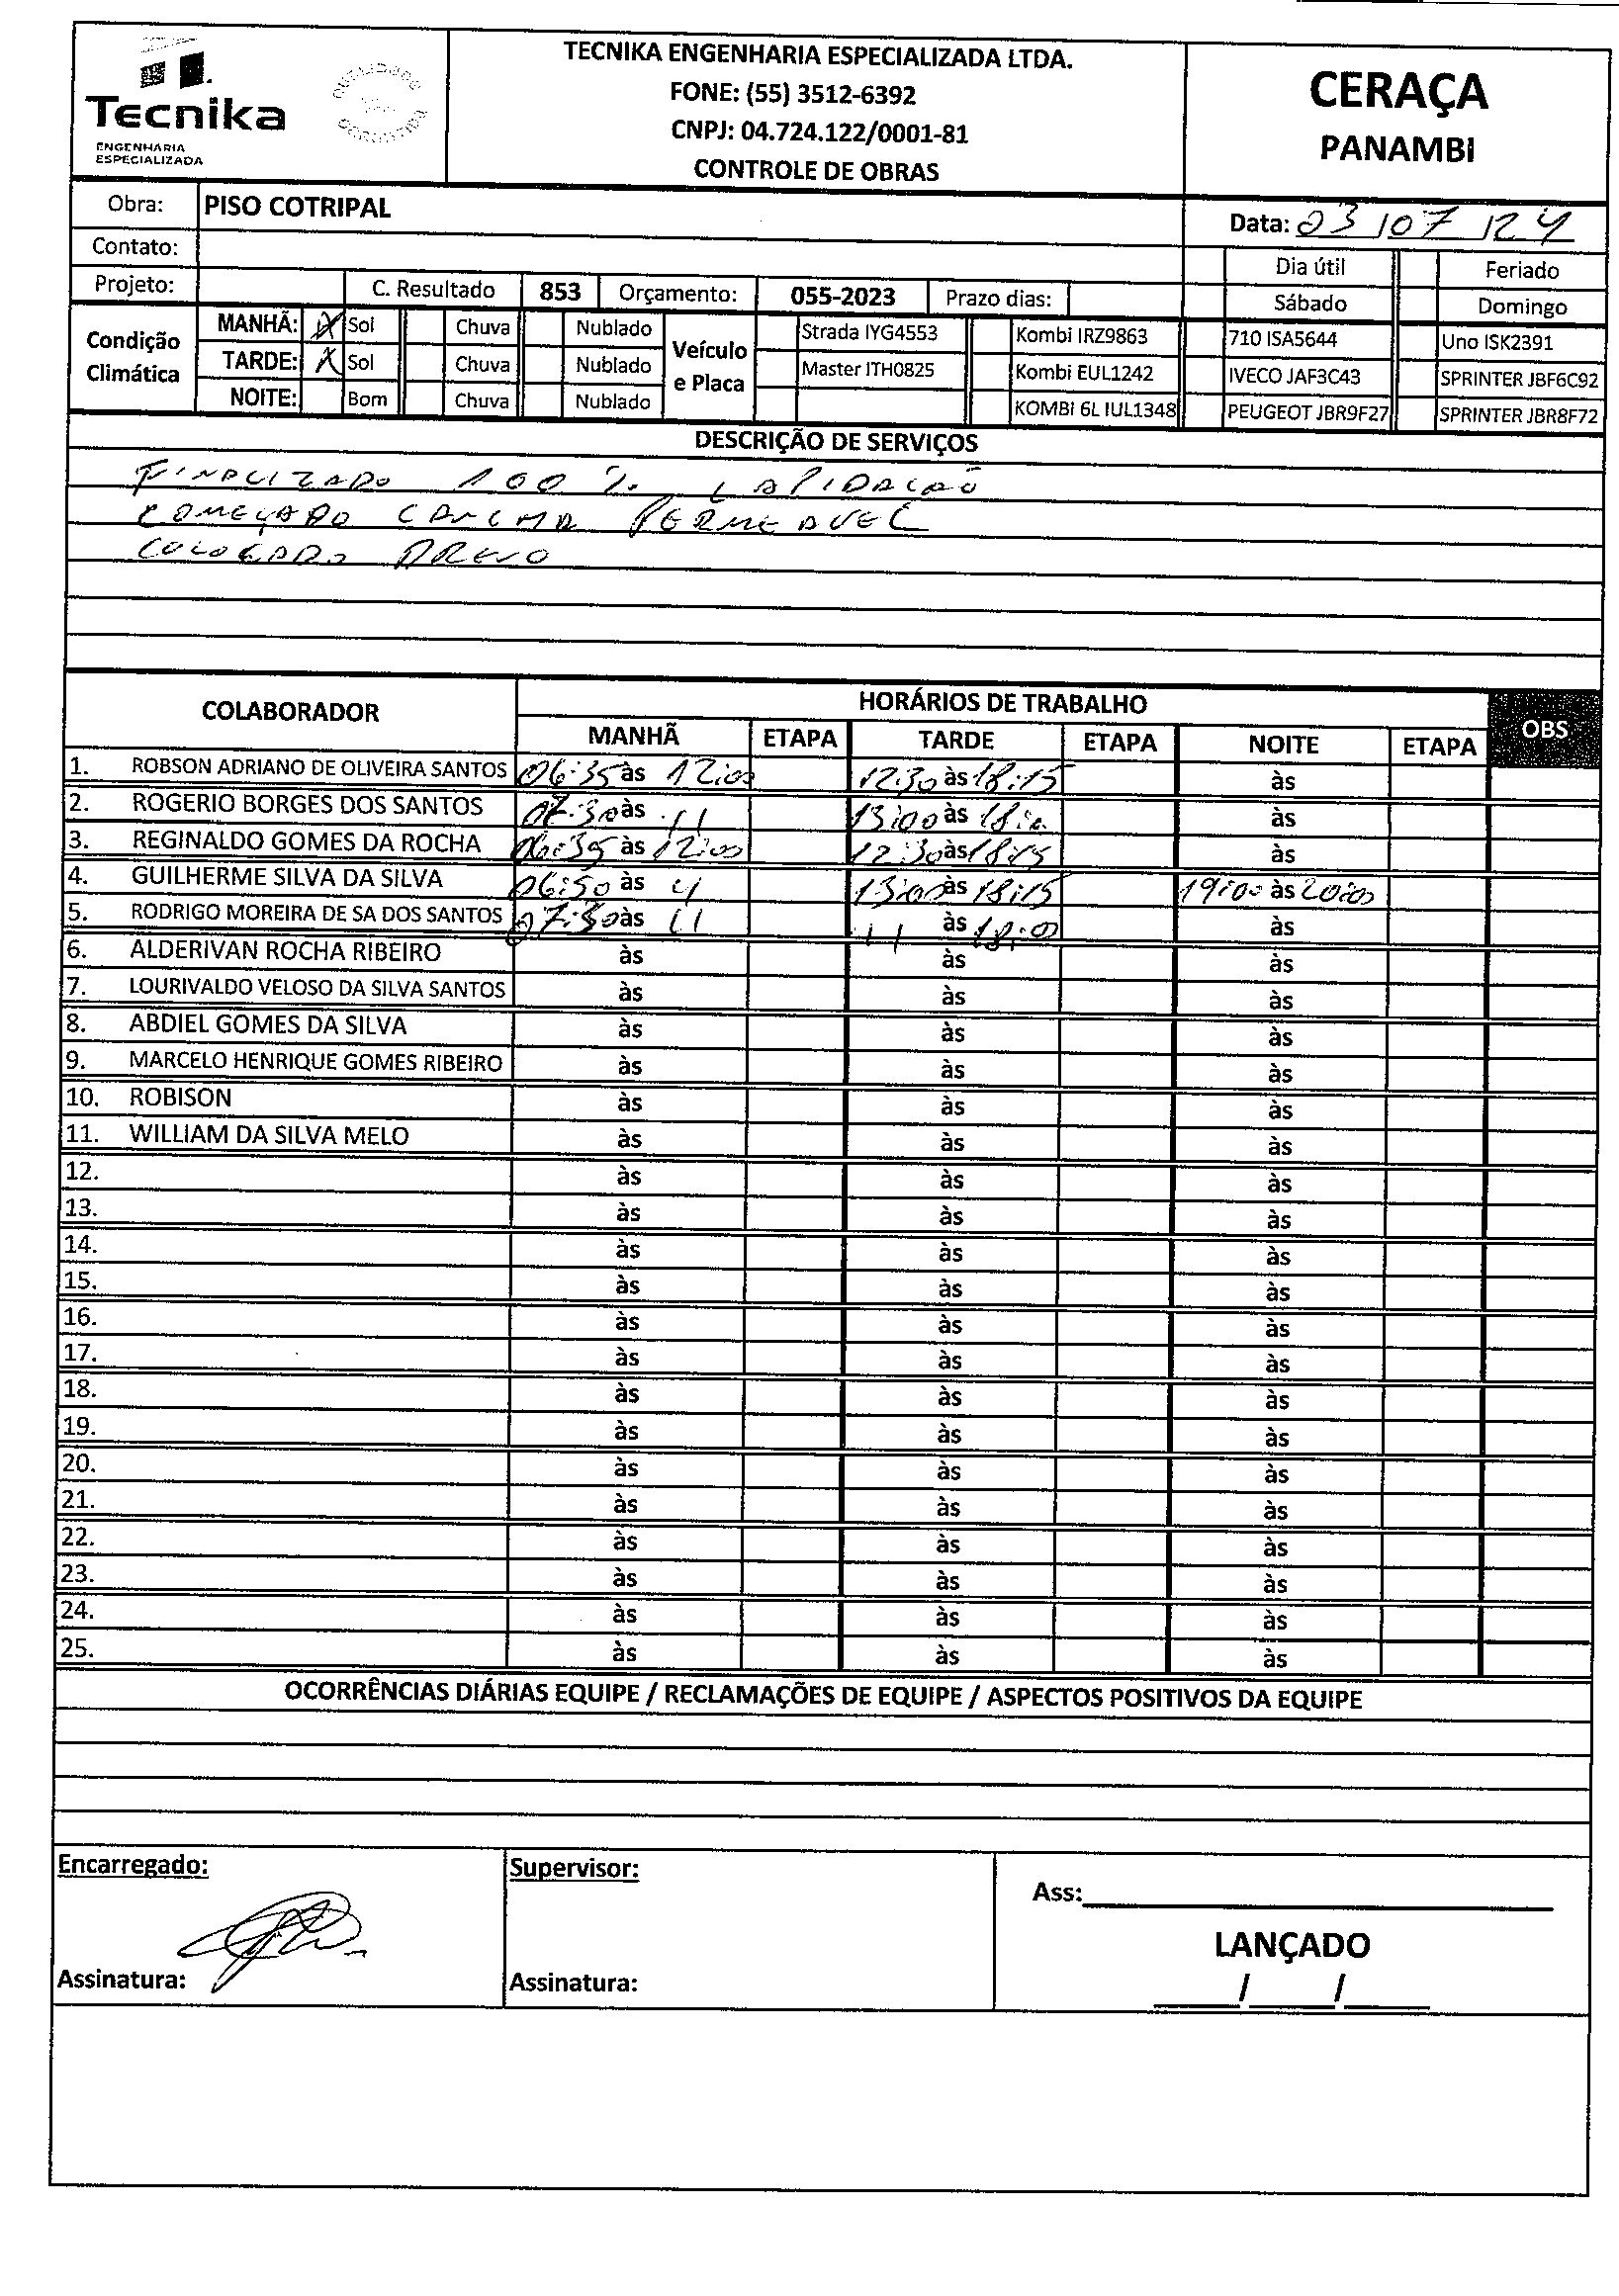 Tecnika
ENGENHARIA
ESPECIALIZADA
TECNIKA ENGENHARIA ESPECIALIZADA LTDA.
FONE: (55) 3512-6392
CNPJ: 04.724.122/0001-81
CONTROLE DE OBRAS
CERAÇA
PANAMBI
Obra: PISO COTRIPAL
Data: 03/07/24
Contato:
Dia útil Feriado
Projeto: C. Resultado 853 Orçamento: 055-2023 Prazo dias:
Sábado Domingo
Condição Climática
MANHÃ: X Sol Chuva Nublado
TARDE: X Sol Chuva Nublado
NOITE: Bom Chuva Nublado
Veículo e Placa
Strada IYG4553 Kombi IRZ9863 710 ISA5644 Uno ISK2391
Master ITH0825 Kombi EUL1242 IVECO JAF3C43 SPRINTER JBF6C92
KOMBI 6L IUL1348 PEUGEOT JBR9F27 SPRINTER JBR8F72
DESCRIÇÃO DE SERVIÇOS
FINALIZADO 100 % LAPIDACAO
COMEÇADO CANCHA PERMEAVEL
COLOCADO DRENO
COLABORADOR HORÁRIOS DE TRABALHO OBS
MANHÃ ETAPA TARDE ETAPA NOITE ETAPA
1. ROBSON ADRIANO DE OLIVEIRA SANTOS 06:35 às 12:00 12:30 às 18:15 às
2. ROGERIO BORGES DOS SANTOS 07:30 às 11 13:00 às 18:00 às
3. REGINALDO GOMES DA ROCHA 06:35 às 12:00 12:30 às 18:15 às
4. GUILHERME SILVA DA SILVA 06:50 às 11 13:00 às 18:15 19:00 às 20:00
5. RODRIGO MOREIRA DE SA DOS SANTOS 07:30 às 11 11 às 18:00 às
6. ALDERIVAN ROCHA RIBEIRO às às às
7. LOURIVALDO VELOSO DA SILVA SANTOS às às às
8. ABDIEL GOMES DA SILVA às às às
9. MARCELO HENRIQUE GOMES RIBEIRO às às às
10. ROBISON às às às
11. WILLIAM DA SILVA MELO às às às
12. às às às
13. às às às
14. às às às
15. às às às
16. às às às
17. às às às
18. às às às
19. às às às
20. às às às
21. às às às
22. às às às
23. às às às
24. às às às
25. às às às
OCORRÊNCIAS DIÁRIAS EQUIPE / RECLAMAÇÕES DE EQUIPE / ASPECTOS POSITIVOS DA EQUIPE
Encarregado: Supervisor:
Ass:
LANÇADO
Assinatura: Assinatura:
/ /